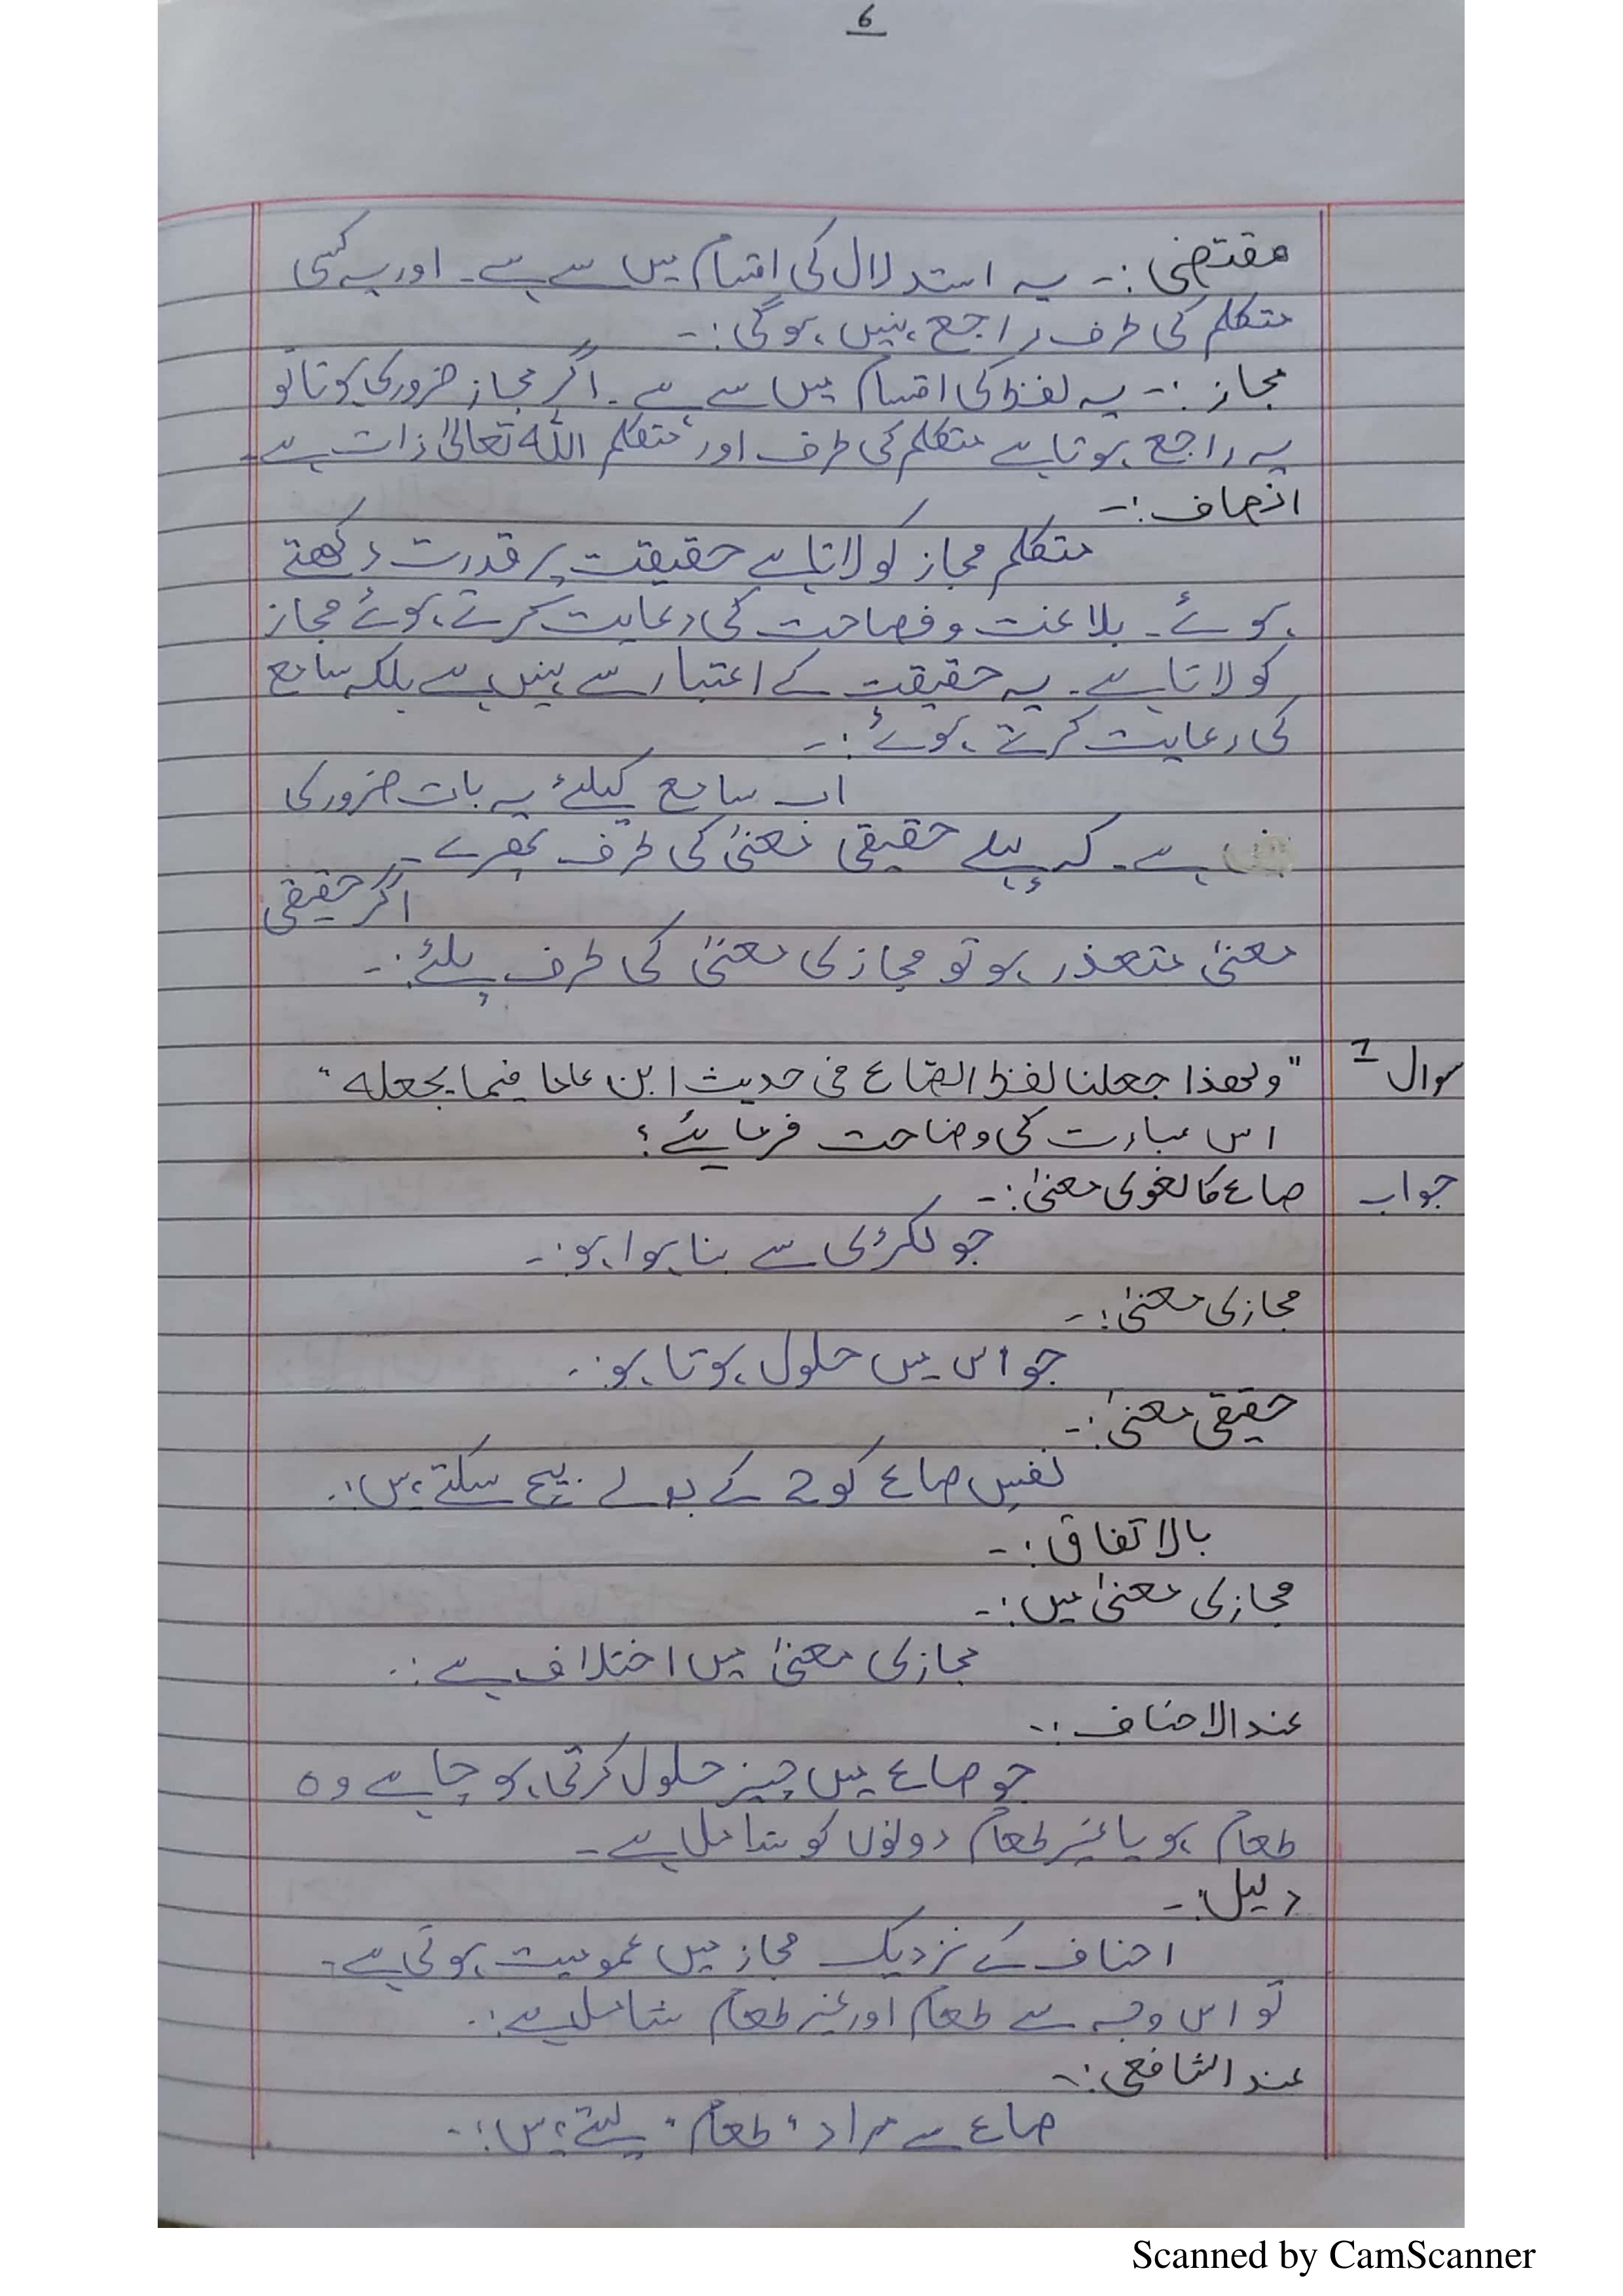 6
مقتضی :۔ یہ استدلال کی اقسام میں سے ہے۔ اور یہ کسی
متکلم کی طرف راجع نہیں ہوگی :۔
مجاز :۔ یہ لفظ کی اقسام میں سے ہے۔ اگر مجاز ضروری ہوتا تو
یہ راجع ہوتا ہے متکلم کی طرف اور متکلم اللہ تعالیٰ ذات ہے۔
انصاف :۔
متکلم مجاز کو لاتا ہے حقیقت پر قدرت رکھتے
ہوئے۔ بلاغت و فصاحت کی رعایت کرتے ہوئے مجاز
کو لاتا ہے۔ یہ حقیقت کے اعتبار سے نہیں ہے بلکہ سامع
کی رعایت کرتے ہوئے :۔
اب سامع کیلئے یہ بات ضروری
ہے۔ کہ پہلے حقیقی معنیٰ کی طرف پھرے۔
اگر حقیقی
معنیٰ متعذر ہو تو مجازی معنیٰ کی طرف پلٹے :۔
سوال 1 "ولھذا جعلنا لفظ الصاع فی حدیث ابن عاما فیما یجعلہ"
اس عبارت کی وضاحت فرمایئے؟
جواب صاع کا لغوی معنیٰ :۔
جو لکڑی سے بنا ہوا ہو :۔
مجازی معنیٰ :۔
جو اس میں حلول ہوتا ہو :۔
حقیقی معنیٰ :۔
نفسِ صاع کو 2 کے بدلے بیچ سکتے ہیں :۔
بالاتفاق :۔
مجازی معنیٰ میں :۔
مجازی معنیٰ میں اختلاف ہے :۔
عندالاحناف :۔
جو صاع میں چیز حلول کرتی ہو چاہے وہ
طعام ہو یا غیر طعام دونوں کو شامل ہے۔
دلیل :۔
احناف کے نزدیک مجاز میں عمومیت ہوتی ہے۔
تو اس وجہ سے طعام اور غیر طعام شامل ہے :۔
عند الشافعی :۔
صاع سے مراد "طعام" لیتے ہیں :۔
Scanned by CamScanner